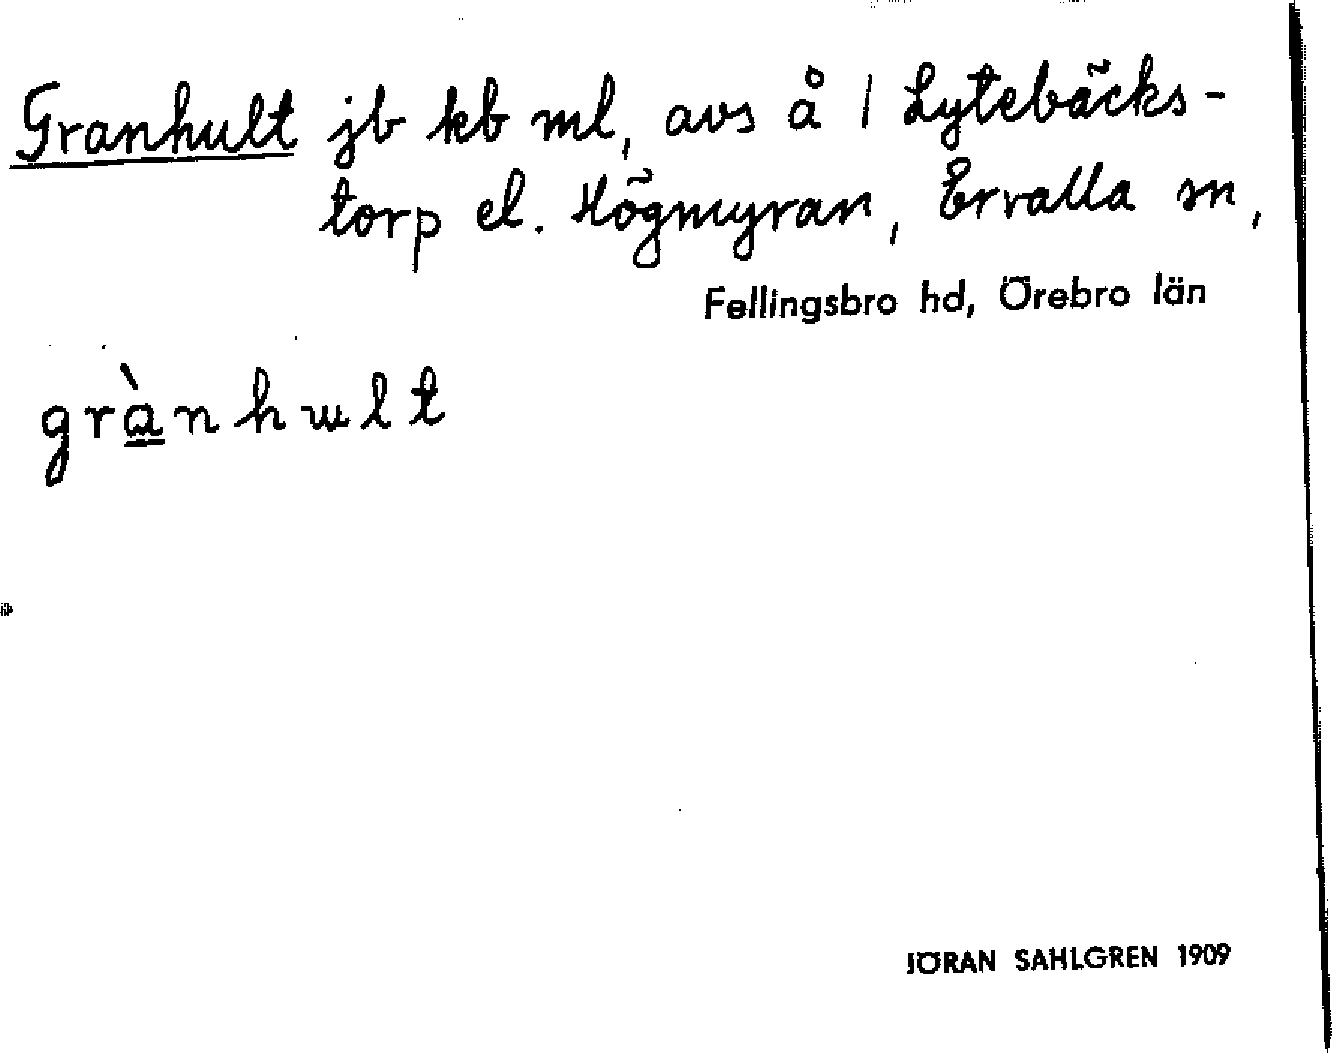 Granhult jb kb ml, avs å / Lytebäcks-
torp el. Högmyran, Ervalla sn,
Fellingsbro hd, Örebro län
grànhult
JÖRAN SAHLGREN 1909